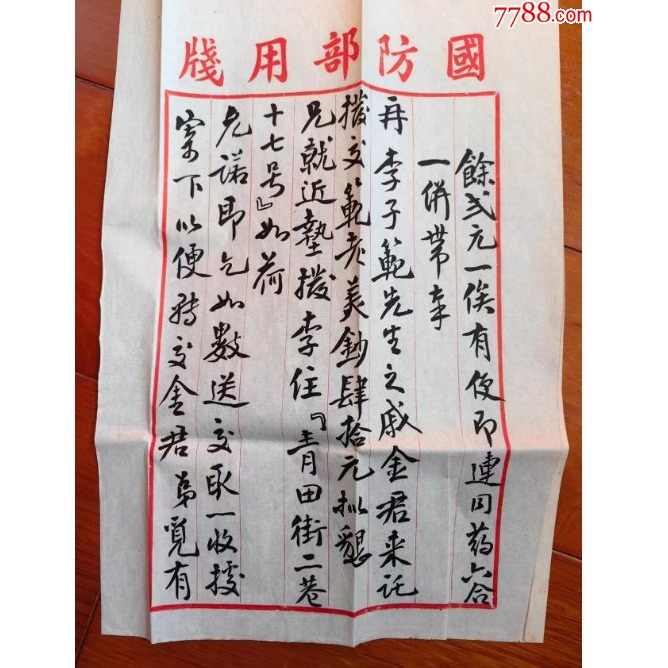 7788.com
國防部用牋
餘弍元一俟有便即連同葯六合
一併帶奉
再李子範先生之戚金君来託
撥交範老美鈔肆拾元拟懇
兄就近墊撥李住『青田街二巷
十七号』如荷
允諾即乞如數送交取一收據
寄下以便轉交金君弟覓有